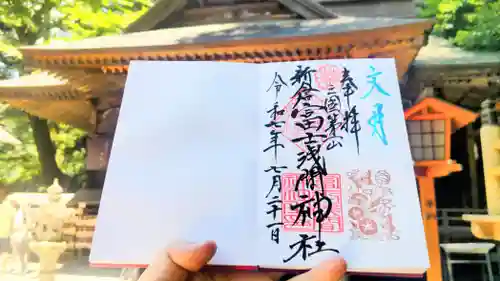 文月
奉拝
三國第一山
新倉冨士浅間神社
令和七年七月二十一日